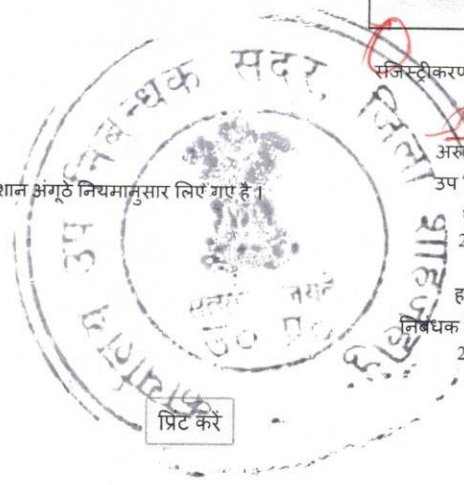 रजिस्ट्रीकरण
शान अंगूठे नियमानुसार लिए गए है ।
उप
निबंधक
कार्यालय उप निबन्धक सदर, जिला
सत्यमेव जयते
उ० प्र०
प्रिंट करें